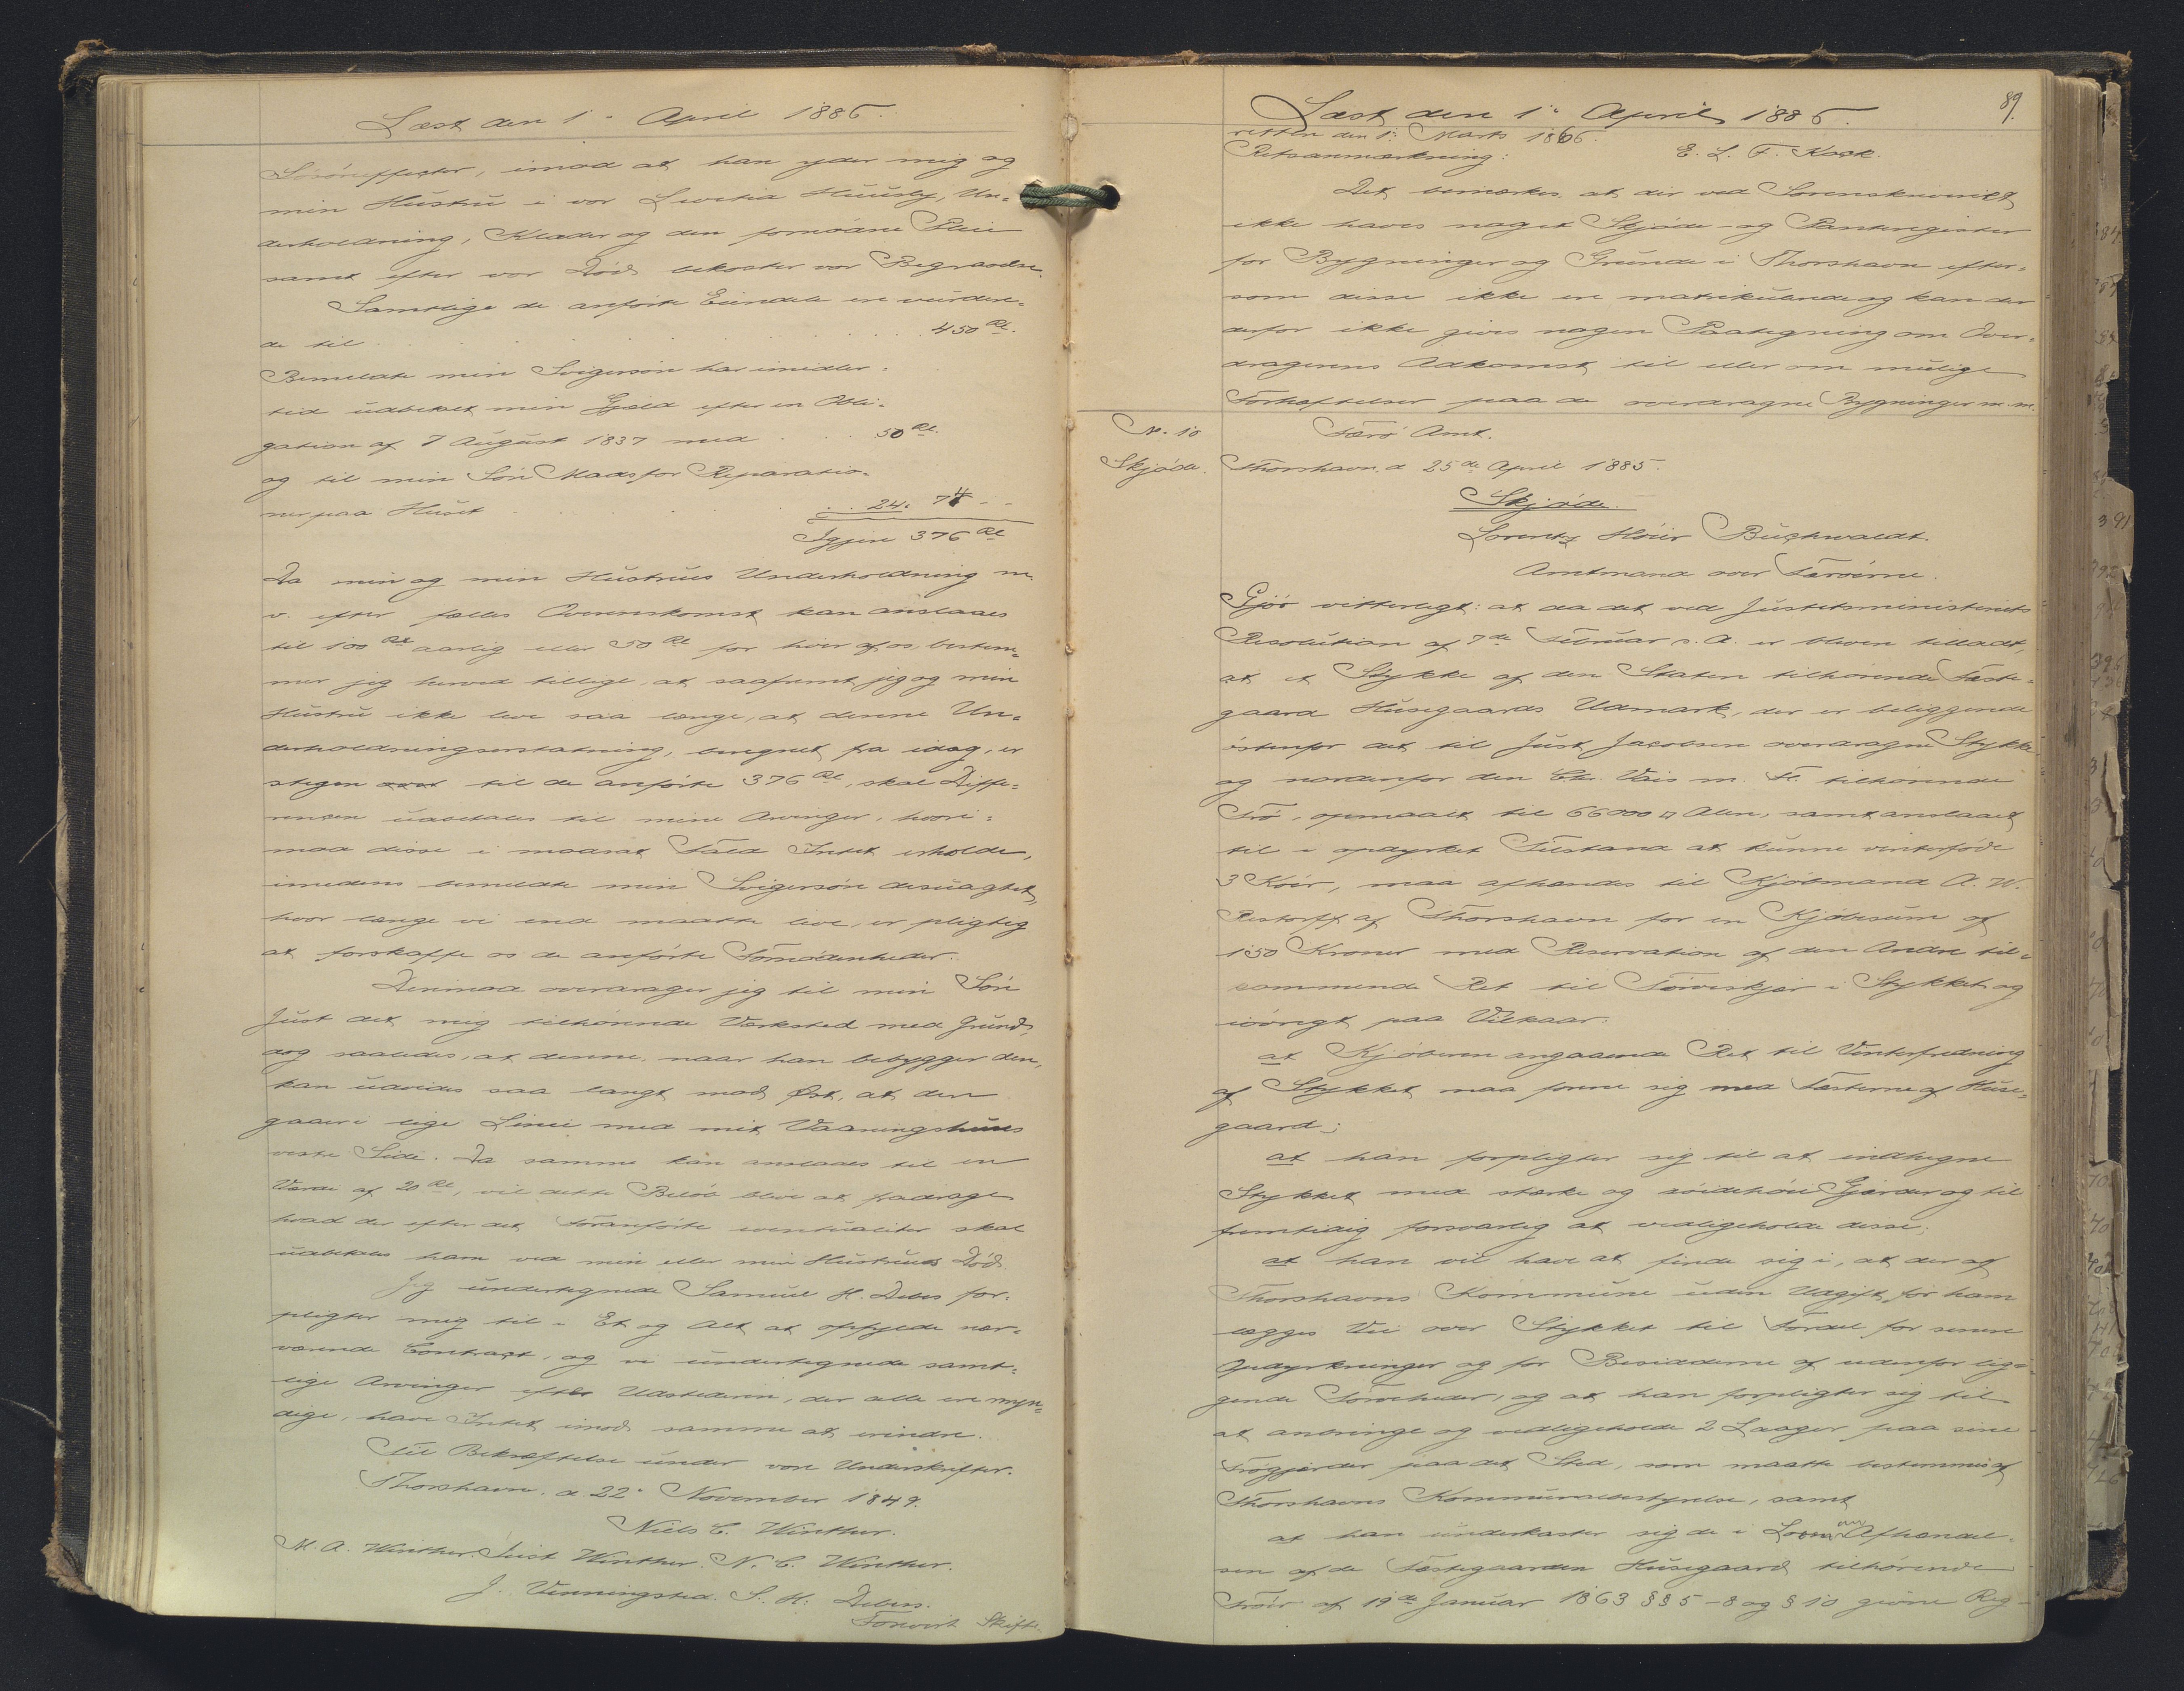 Læst den 1ste April 1886.
imod at han yder mig og
min Hustru i vor Levetid Huusly, Un=
derholdning, Klæder og den fornødne Pleie
samt efter vor Død bekoster vor Begravelse.
Samtlige de anførte Eiendele ere vurdere=
de til . . . . . . . 450 Rd.
Bemeldte min Svigersøn har imidler=
tid udbetalt min Gjæld efter en Obli=
gation af 7 August 1837 med . . . 50 Rd.
og til min Søn Mads for Reparatio=
ner paa Huset . . . . 24. 74 - -
Igjen 376 Rd
Da min og min Hustrues Underholdning m.
v. efter fælles Overenskomst kan anslaaes
til 100 Rd aarlig eller 50 Rd for hver af os, bestem=
mer jeg herved tillige, at saafremt jeg og min
Hustru ikke leve saa længe, at denne Un=
derholdningserstatning, beregnet fra idag, er
stegen til de anførte 376 Rd, skal Diffe=
rensen udbetales til mine Arvinger, hvori=
mod disse i modsat Fald Intet erholde,
imedens bemeldte min Svigersøn desuagtet,
hvor længe vi end maatte leve, er pligtig
at forskaffe os de anførte Fornødenheder.
Derimod overdrager jeg til min Søn
Just det mig tilhørende Værksted med Grund,
dog saaledes, at denne, naar han bebygger den,
kan udvides saa langt mod Øst, at den
gaaer i lige Linie med mit Vaaningshuses
vestre Side. Da samme kan anslaaes til en
Værdi af 20 Rd, vil dette Beløb blive at fradrage
hvad der efter det Foranførte eventualiter skal
udbetales ham ved min eller min Hustrues Død.
Jeg undertegnede Samuel H. Debes for=
pligter mig til i Et og Alt at opfylde nær=
værende Contract, og vi undertegnede samt=
lige Arvinger efter Udstederen, der alle ere myn=
dige, have Intet imod samme at erindre.
Til Bekræftelse under vore Underskrifter.
Thorshavn. d 22de November 1849.
Niels C. Winther.
M. A. Winther. Just Winther. N. C. Winther.
J. Venningsted. S. H. Debes.
Forevist Skifte=
89.
Læst den 1ste April 1886.
retten den 1ste Marts 1866.
E. L. F. Kock.
Retsanmærkning:
Det bemærkes, at der ved Sorenskriveriet
ikke haves noget Skjøde- og Panteregister
for Bygninger og Grunde i Thorshavn efter=
som disse ikke ere matrikulerede og kan der
derfor ikke gives nogen Paategning om Over=
dragerens Adkomst til eller om mulige
Forhæftelser paa de overdragne Bygninger m. m.
N. 10
Skjøde.
Færø Amt.
Thorshavn d 25de April 1885.
Skjøde.
Lorentz Høier Buchwaldt.
Amtmand over Færøerne.
Gjør vitterligt: at da det ved Justitsministeriets
Resolution af 7de Februar d. A. er bleven tilladt,
at et Stykke af den Staten tilhørende Fæste=
gaard Husegaards Udmark, der er beliggende
østenfor det til Just Jacobsen overdragne Stykke
og nordenfor den Chr. Vais m. Fl. tilhørende
Trø, opmaalt til 66000 □ Alen, samt anslaaet
til i opdyrket Tilstand at kunne vinterføde
3 Køer, maa afhændes til Kjøbmand A. W.
Restorff af Thorshavn for en Kjøbesum af
150 Kroner med Reservation af den Andre til=
kommende Ret til Tørveskjær i Stykket og
iøvrigt paa Vilkaar:
at Kjøberen angaaende Ret til Vinterfredning
af Stykket maa forene sig med Fæsterne af Huse=
gaard;
at han forpligter sig til at indhegne
Stykket med stærke og Gjærder og til
fremtidig forsvarlig at vedligeholde disse;
at han vil have at finde sig i, at der af
Thorshavns Kommune uden Udgift for ham
lægges Vei over Stykket til Fordel for senere
Opdyrkninger og for Besidderne af udenfor lig=
gende Tømheder, og at han forpligter sig til
at anbringe og vedligeholde 2 Laager paa sine
Trøgjærder paa det Sted, som maatte bestemmes af
Thorshavns Kommunalbestyrelse, samt
at han underkaster sig de i Lov om Afhændel=
sen af de Fæstegaarden Husegaard tilhørende
Trøer af 19de Januar 1863 §§ 5-8 og § 10 givne Reg=